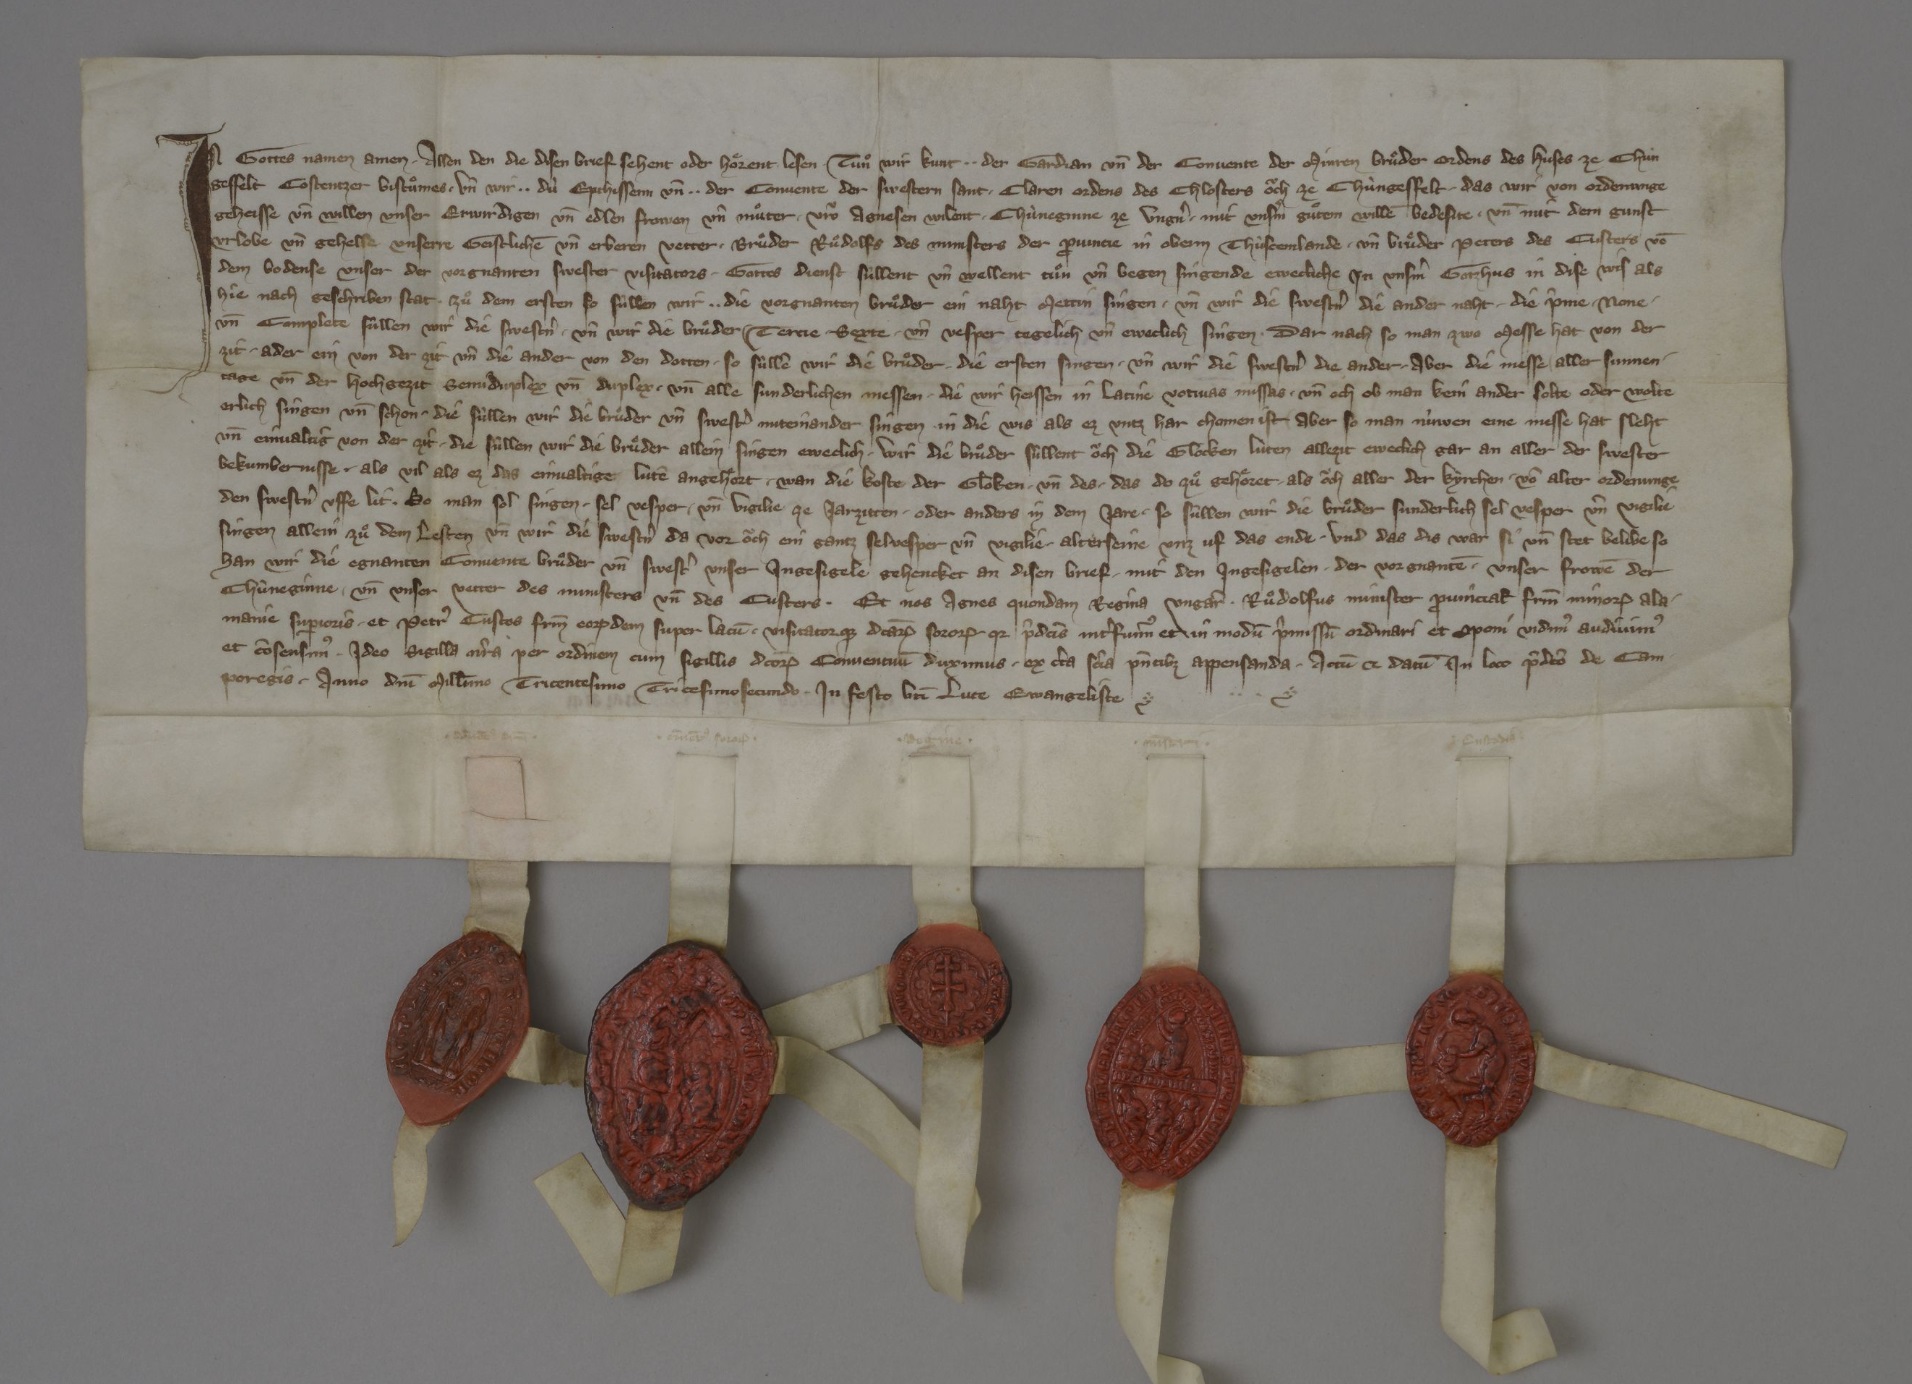 IN Gottes namen amen · Allen den die disen brief sehent oder hoͤrent lesen · Tuͦn wir kunt ·· der Gardian vn̄ der Conuente der Minren bruͦder ordens des huses ze Chùn
gesfelt Costentzer bistuͦmes · vn̄ wir ·· dù Epthissenn vn̄ ·· der Conuente der swestern sant · Claren ordens des Chlosters oͮch ze Chùngesfelt · das wir von ordenunge
geheisse vn̄ willen vnser Erwirdigen vn̄ edlen frowen vn̄ muͦter · Agnesen wilent · Chùneginne ze Vngn̄ · mit vnsm̄ guͦtem willē bedehte · vn̄ mit dem gunst
vrlobe vn̄ gehelle vnserre Geistlichē vn̄ erberen vetter · Bruͦder Ruͦdolfs des ministers der ꝓuincie in obern Thùscemlande · vn̄ bruͦder Peters des Custers vō
dem bodense vnser der vorgnanten swester visitators · Gottes dienst sùllent vn̄ wellent tuͦn vn̄ began singende ewecliche In vnsm̄ Gotzhus in dise wis als
hie nach geschriben stat · zuͦ dem ersten so sùllen wir ·· die vorgnanten bruͦder ein naht Mettin singen · vn̄ wir die swestn̄ die ander naht · die p̄me · None ·
vn̄ Complete sùllen wir die swestn̄ · vn̄ wir die bruͦder Tercie · Sexte · vn̄ vesper tegelich vn̄ eweclich singen · Dar nach so man zwo Messe hat von der
zit · ader ein von der zit vn̄ die ander von den dotten · so sùllē wir die bruͦder · die ersten singen · vn̄ wir die swestn̄ die ander · Aber die messe aller sunnen
tage vn̄ der hochgezit Semiduplex vn̄ duplex · vn̄ alle sunderlichen messen · die wir heissen in Latine votiuas missas · vn̄ och ob man kein ander solte oder wolte
erlich singen vn̄ schon · die sùllen wir die bruͦder vn̄ swestn̄ miteinander singen in die wis als ez vntz har chomen ist Aber so man nùwen eine messe hat sleht
vn̄ einualtig von der zit · die sùllen wir die bruͦder allein singen eweclich · Wir die bruͦder sùllent oͮch die Glocken lùten allezit eweclich gar an aller der swester
bekumbernisse · als vil als ez das einualtige lutē angehoͤrt · wan die koste der Gloken · vn̄ des · das do zuͦ gehoͤret · als oͮch aller der kyrchen · vō alter ordenunge
den swestn̄ vffe lit · So man sol singen · sel vesper · vn̄ vigilie ze Jarziten · oder anders in dem Jare · so sùllen wir die bruͦder sunderlich sel vesper vn̄ vigilie
singen allein zuͦ dem Lesten vn̄ wir die swestn̄ da vor oͮch ein gantz selvesper vn̄ vigilie · alterseine vntz vf das ende · vnd das dis war si vn̄ stet belibe so
han wir die egnanten Conuente bruͦder vn̄ swestn̄ vnser Ingesigele gehencket an disen brief · mit den Ingesigelen · der vorgnantē · vnser frowē der
Chùneginne · vn̄ vnser vetter des ministers vn̄ des Custers · Et nos Agnes quondam Regina Vngar̄ · Ruͦdolfus minister ꝓuincial̄ frm̄ minoꝝ ala
manie supioris · et Petr̄ Custos frm̄ eoꝝdem super lacū · visitatorqꝫ dc̄aꝝ sororꝝ · qr p̄dc̄is int̄fuim᷒ et in modū p̄missū ordinari et vidim᷒ audiuim᷒
et cōsensim᷒ · Ideo Sigilla nr̄a per ordinem cum sigillis dc̄orꝝ Conuentuū duximus · ex cta scīa pn̄tibꝫ appensanda · Actū et datū In loco p̄dc̄o de Cam
poregis · Anno dn̄i Mill̄imo Tricentesimo Tricesimosecundo · In festo bt̄i Luce Ewangeliste
· Regine ·